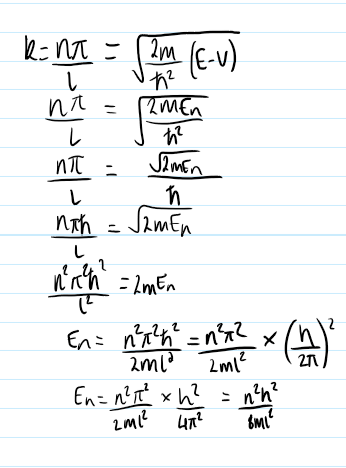 k = nπ/L = √(2m/ħ² (E-V))
nπ/L = √(2mEn/ħ²)
nπ/L = √2mEn/ħ
nπħ/L = √2mEn
n²π²ħ²/L² = 2mEn
En = n²π²ħ²/2mL² = n²π²/2mL² × (h/2π)²
En = n²π²/2mL² × h²/4π² = n²h²/8mL²